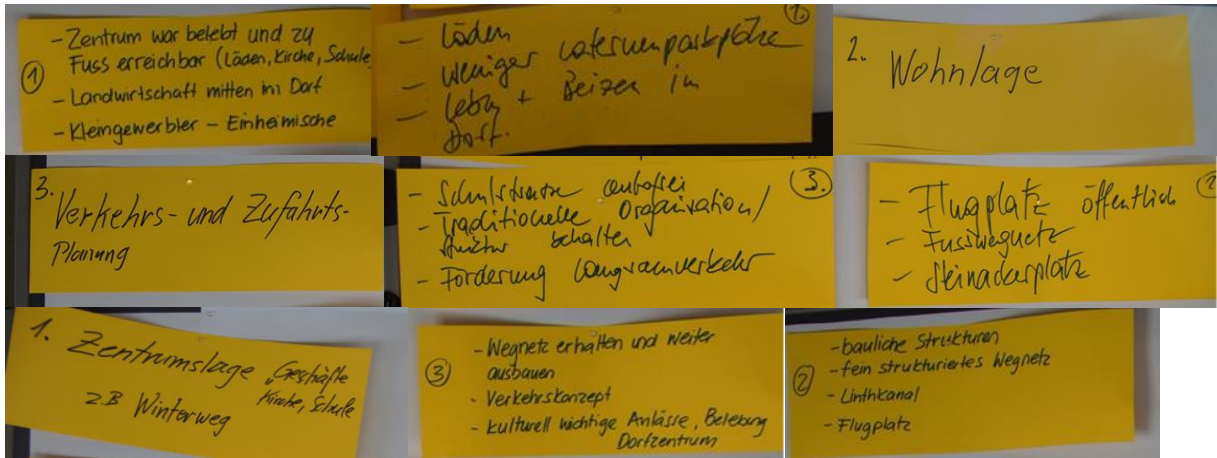 ① - Zentrum war belebt und zu
Fuss erreichbar (Läden, Kirche, Schule)
- Landwirtschaft mitten im Dorf
- Kleingewerbler - Einheimische
1.
- Läden
- weniger Laternenparkplätze
- Leben + Beizen im
Dorf.
2. Wohnlage
3. Verkehrs- und Zufahrts-
Planung
3.
- Schulstrasse autofrei
- Traditionelle Organisation/
Struktur behalten
- Förderung Langsamverkehr
2
- Flugplatz öffentlich
- Fusswegnetz
- Steinackerplatz
1. Zentrumslage "Geschäfte
Kirche, Schule
z.B Winterweg
③ - Wegnetz erhalten und weiter
ausbauen
- Verkehrskonzept
- kulturell wichtige Anlässe, Belebung
Dorfzentrum
② - bauliche Strukturen
- fein strukturiertes Wegnetz
- Linthkanal
- Flugplatz